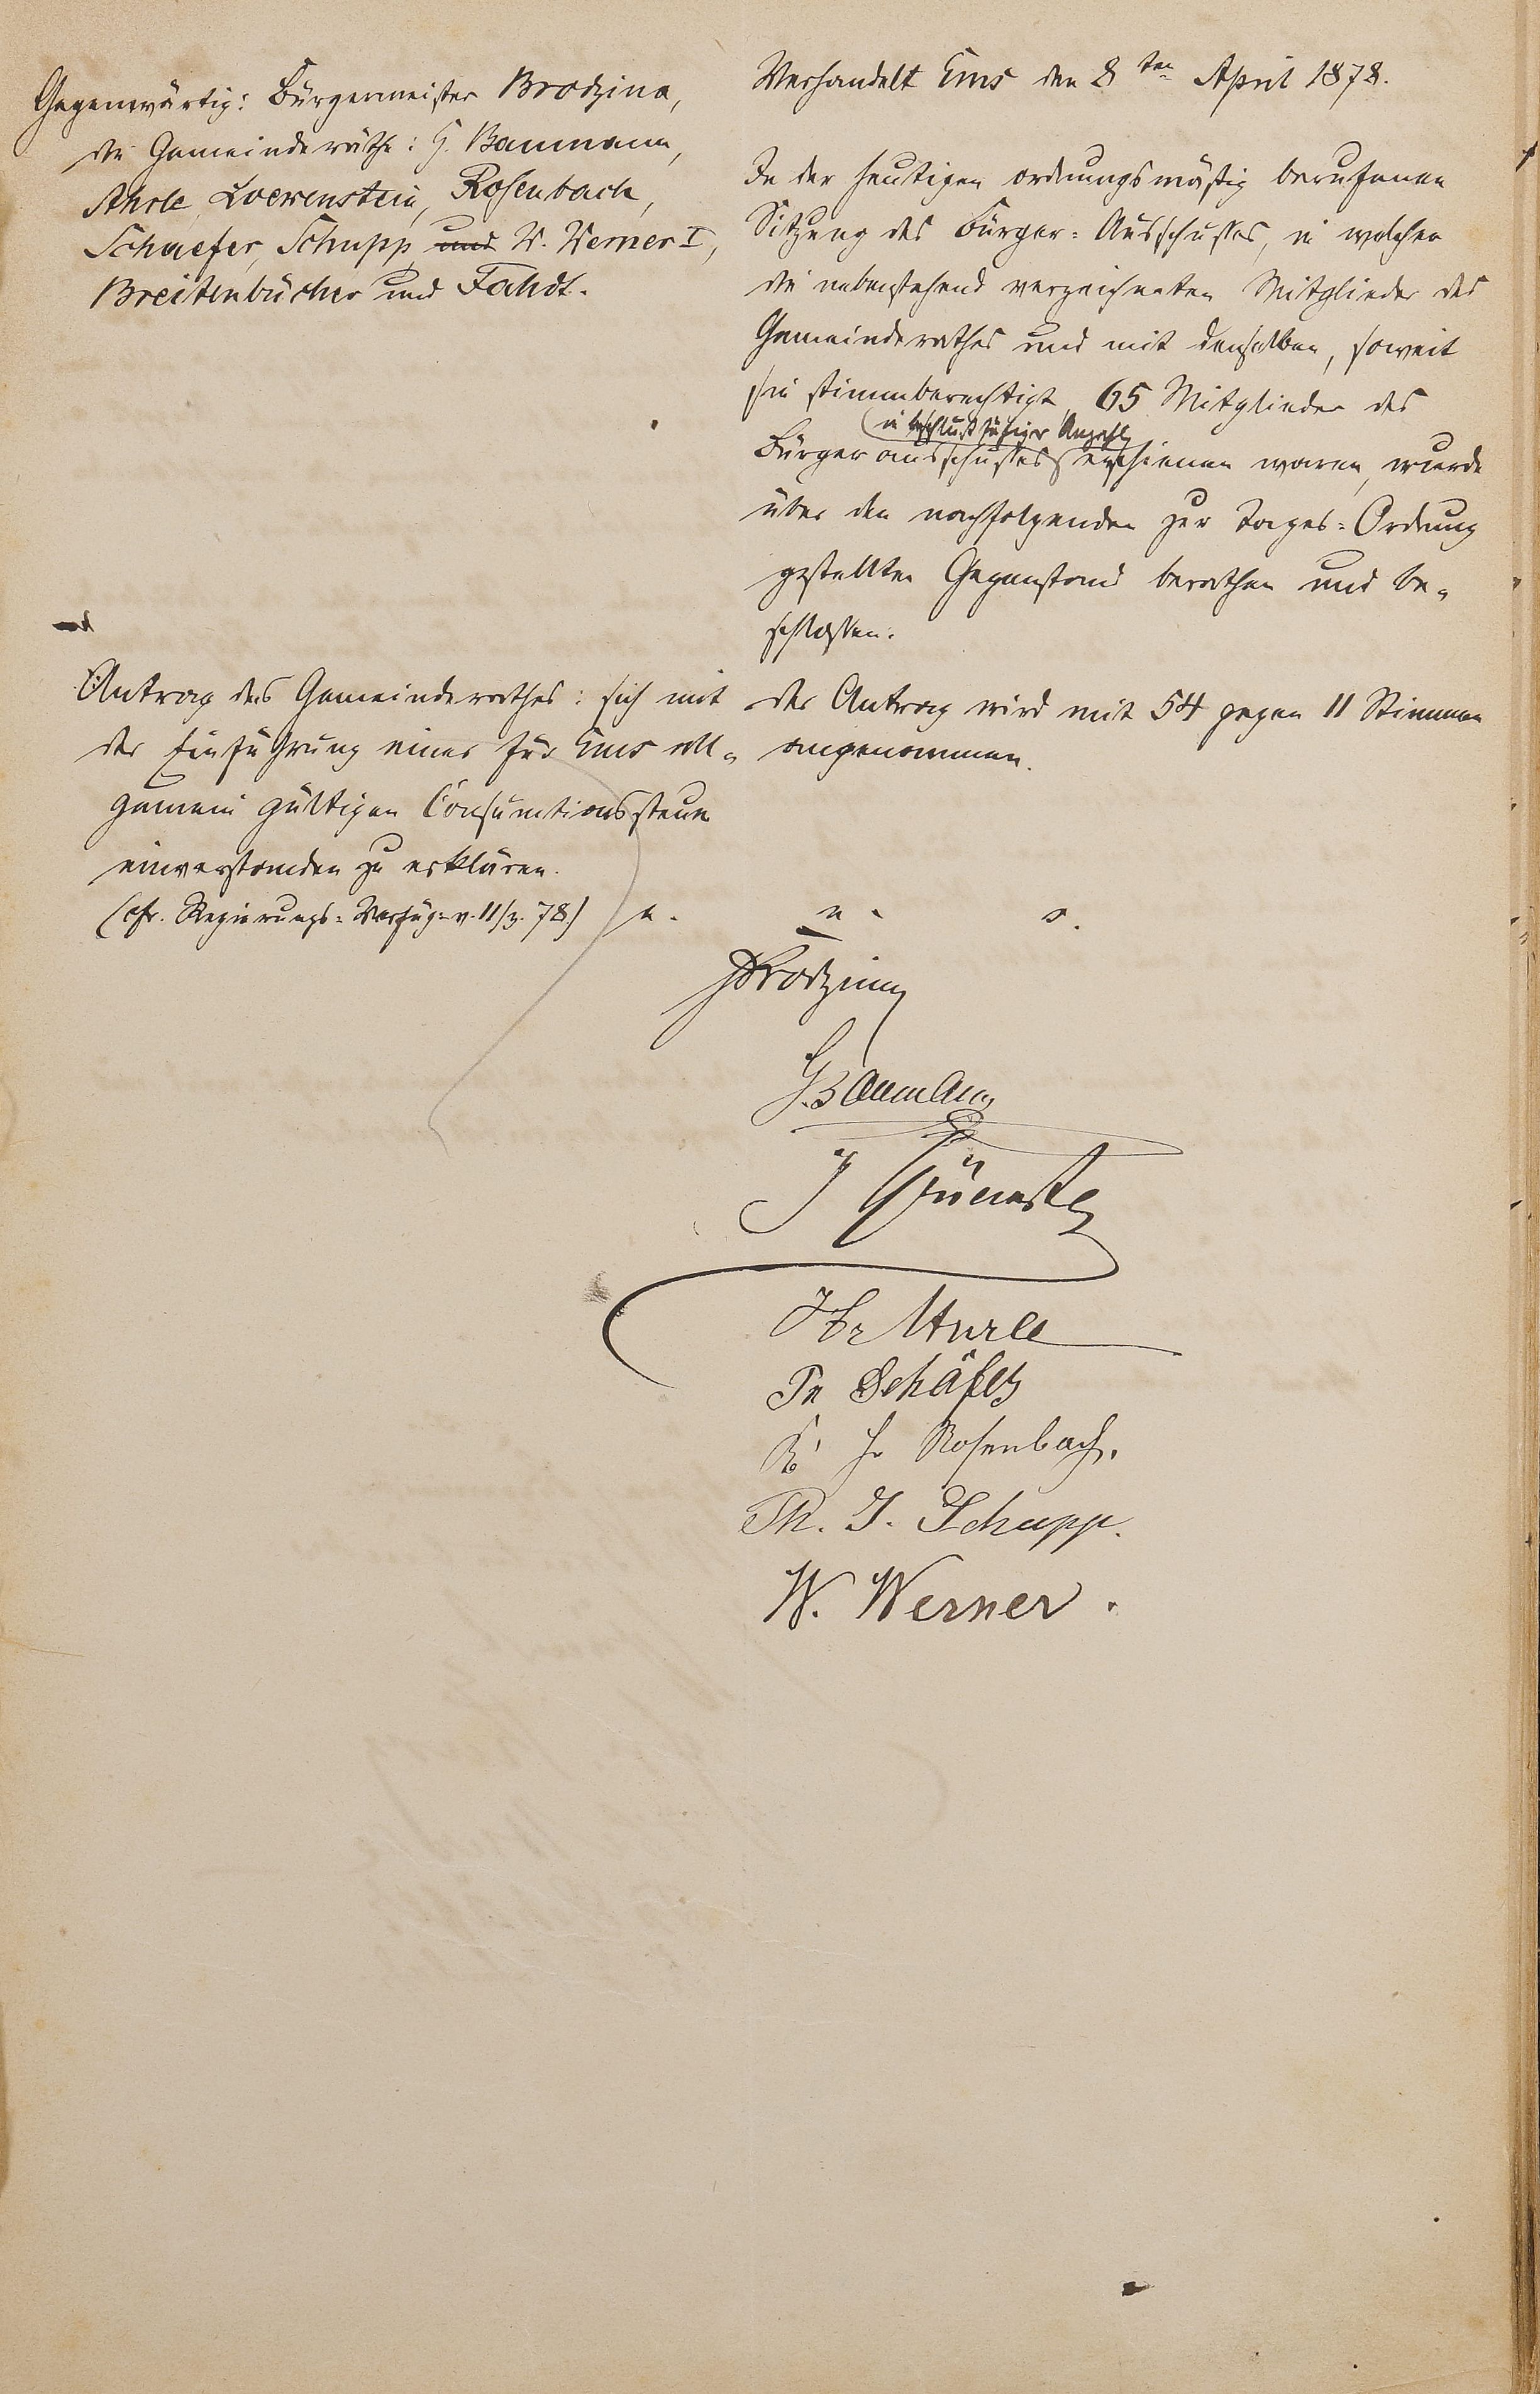 Gegenwärtig: Bürgermeister Brodzina,
die Gemeinderäthe: H. Baumann,
Ahrle, Loewenstein, Rosenbach,
Schaefer, Schupp, und W. Werner I,
Breitenbücher und Fahdt.
Verhandelt Ems den 8ten April 1878.
In der heutigen ordnungsmäßig berufenen
Sitzung des Bürger-Ausschusses, in welcher
die nebenstehend verzeichneten Mitglieder des
Gemeinderathes und mit denselben, soweit
sie stimmberechtigt, 65 Mitglieder des
in beschlußfähiger Anzahl
Bürgerausschusses erschienen waren, wurde
über den nachfolgenden zur Tages-Ordnung
gestellten Gegenstand berathen und be-
schlossen.
Antrag des Gemeinderathes: sich mit
der Einführung einer für Ems all-
gemein gültigen Consumtionssteuer
einverstanden zu erklären.
(cfr. Regierungs-Verfüg. v. 11/3. 78.)
Der Antrag wird mit 54 gegen 11 Stimmen
angenommen.
a. u. s.
Brodzina
H. Baumann
J
Schäfer
Rosenbach.
Ph. J. Schupp.
W. Werner.